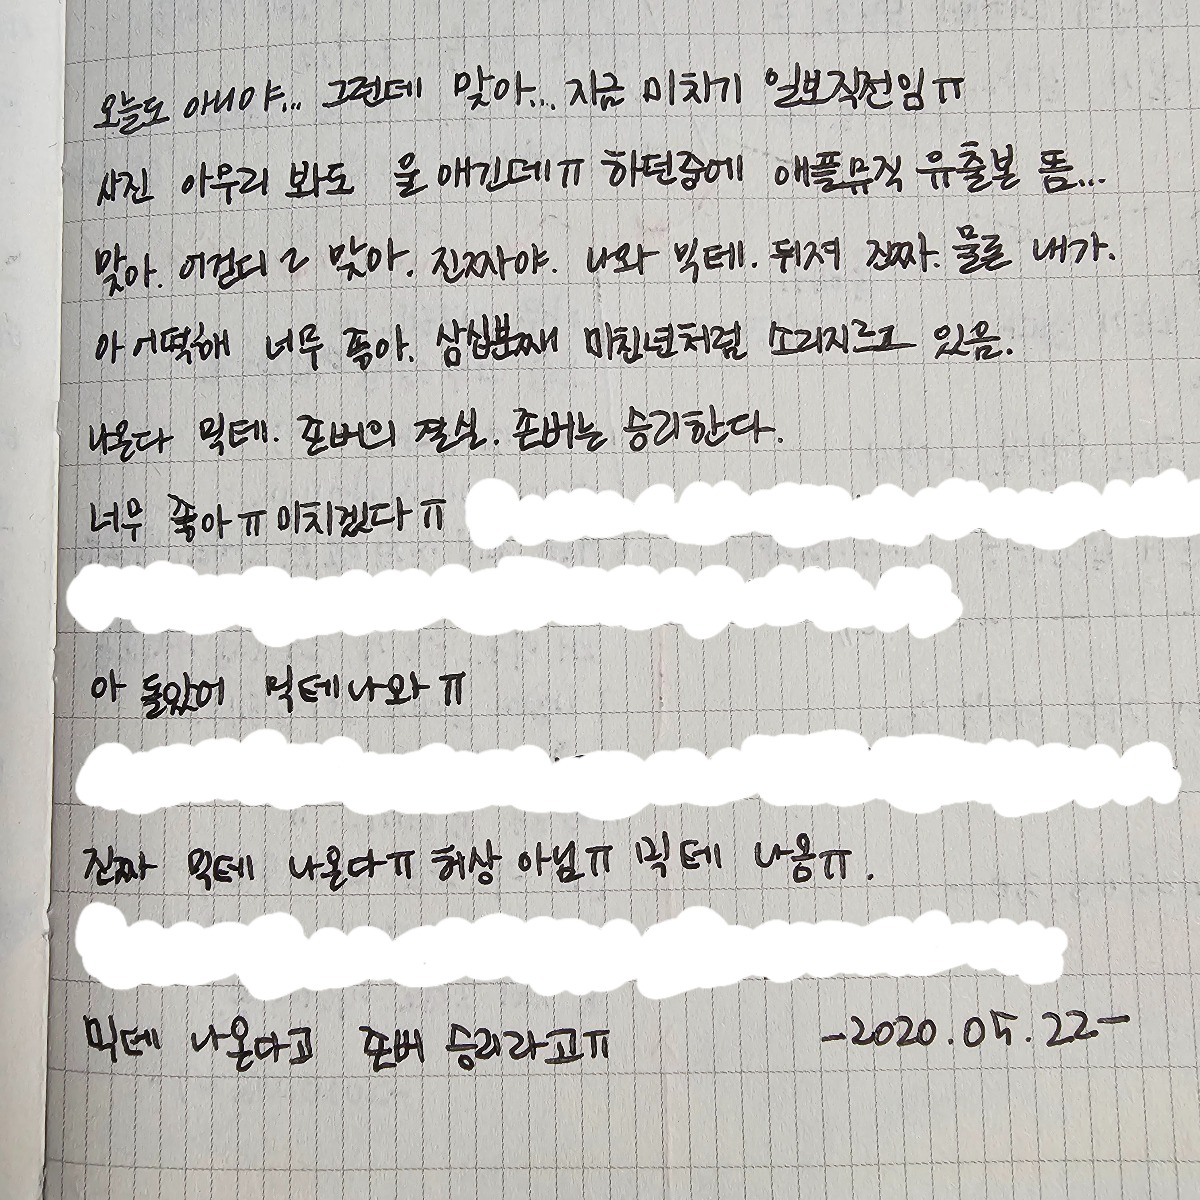 오늘도 아니야... 그런데 맞아... 지금 미치기 일보직전임ㅠ
사진 아무리 봐도 울 애긴데ㅠ 하던중에 애플뮤직 유출본 뜸...
맞아. 이겁디ㄹ 맞아. 진짜야. 나와 믹테. 뒤져 진짜. 물론 내가.
아 어떡해 너무 좋아. 삼십분째 미친년처럼 소리지르고 있음.
나온다 믹테. 존버의 결실. 존버는 승리한다.
너무 좋아ㅠ 미치겠다ㅠ
아 돌았어 믹테나와ㅠ
진짜 믹테 나온다ㅠ 허상 아님ㅠ 믹테 나옴ㅠ.
믹테 나온다고 존버 승리라고ㅠ -2020.05.22-